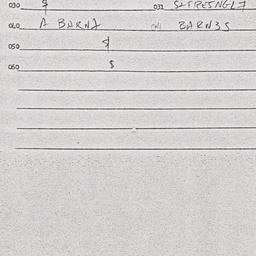 030 $ 031 STRESNGL7
040 A BARNZ 041 BARN3S
050 $
060 $